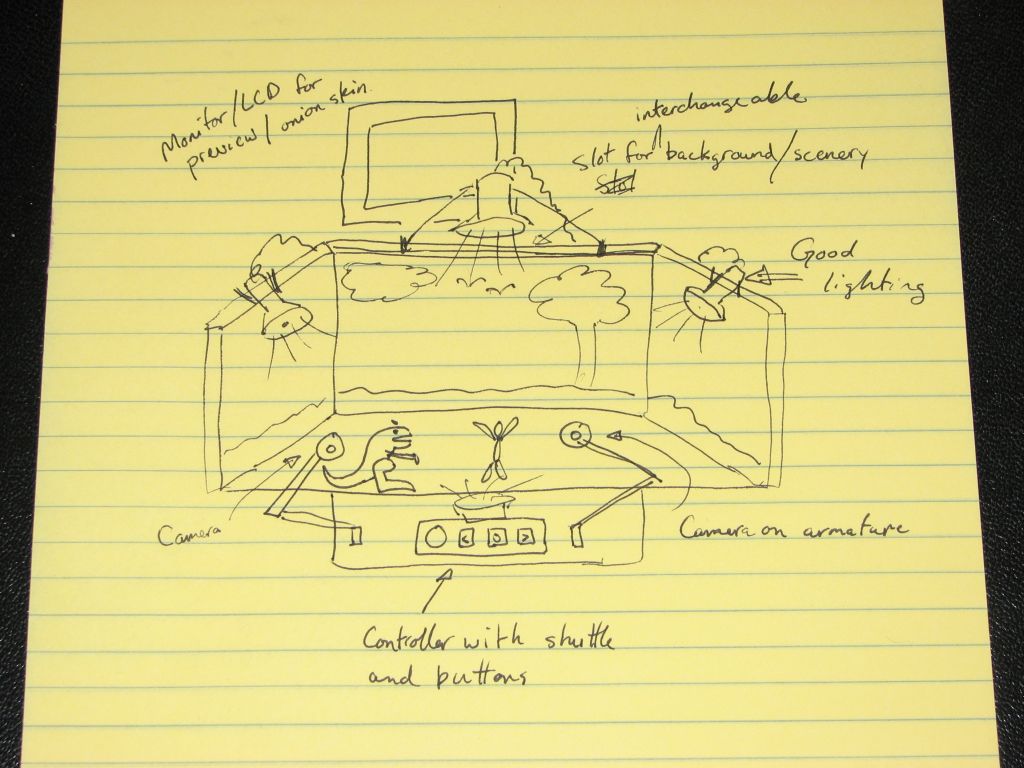 Monitor/LCD for
preview/onion skin.
interchangeable
slot for background/scenery
Good
lighting
< o >
Camera
Camera on armature
Controller with shuttle
and buttons